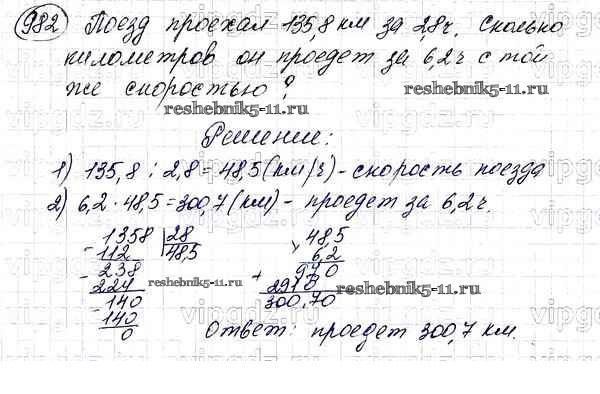 982 Поезд проехал 135,8 км за 2,8 ч. Сколько
километров он проедет за 6,2 ч с той
же скоростью?
reshebnik5-11.ru
reshebnik5-11.ru
Решение:
1) 135,8 : 2,8 = 48,5 (км/ч) - скорость поезда
2) 6,2 · 48,5 = 300,7 (км) - проедет за 6,2 ч.
1358 | 28
- 112 48,5
- 238
224
- 140
140
0
reshebnik5-11.ru
× 48,5
6,2
+ 970
2910
300,70
reshebnik5-11.ru
Ответ: проедет 300,7 км.